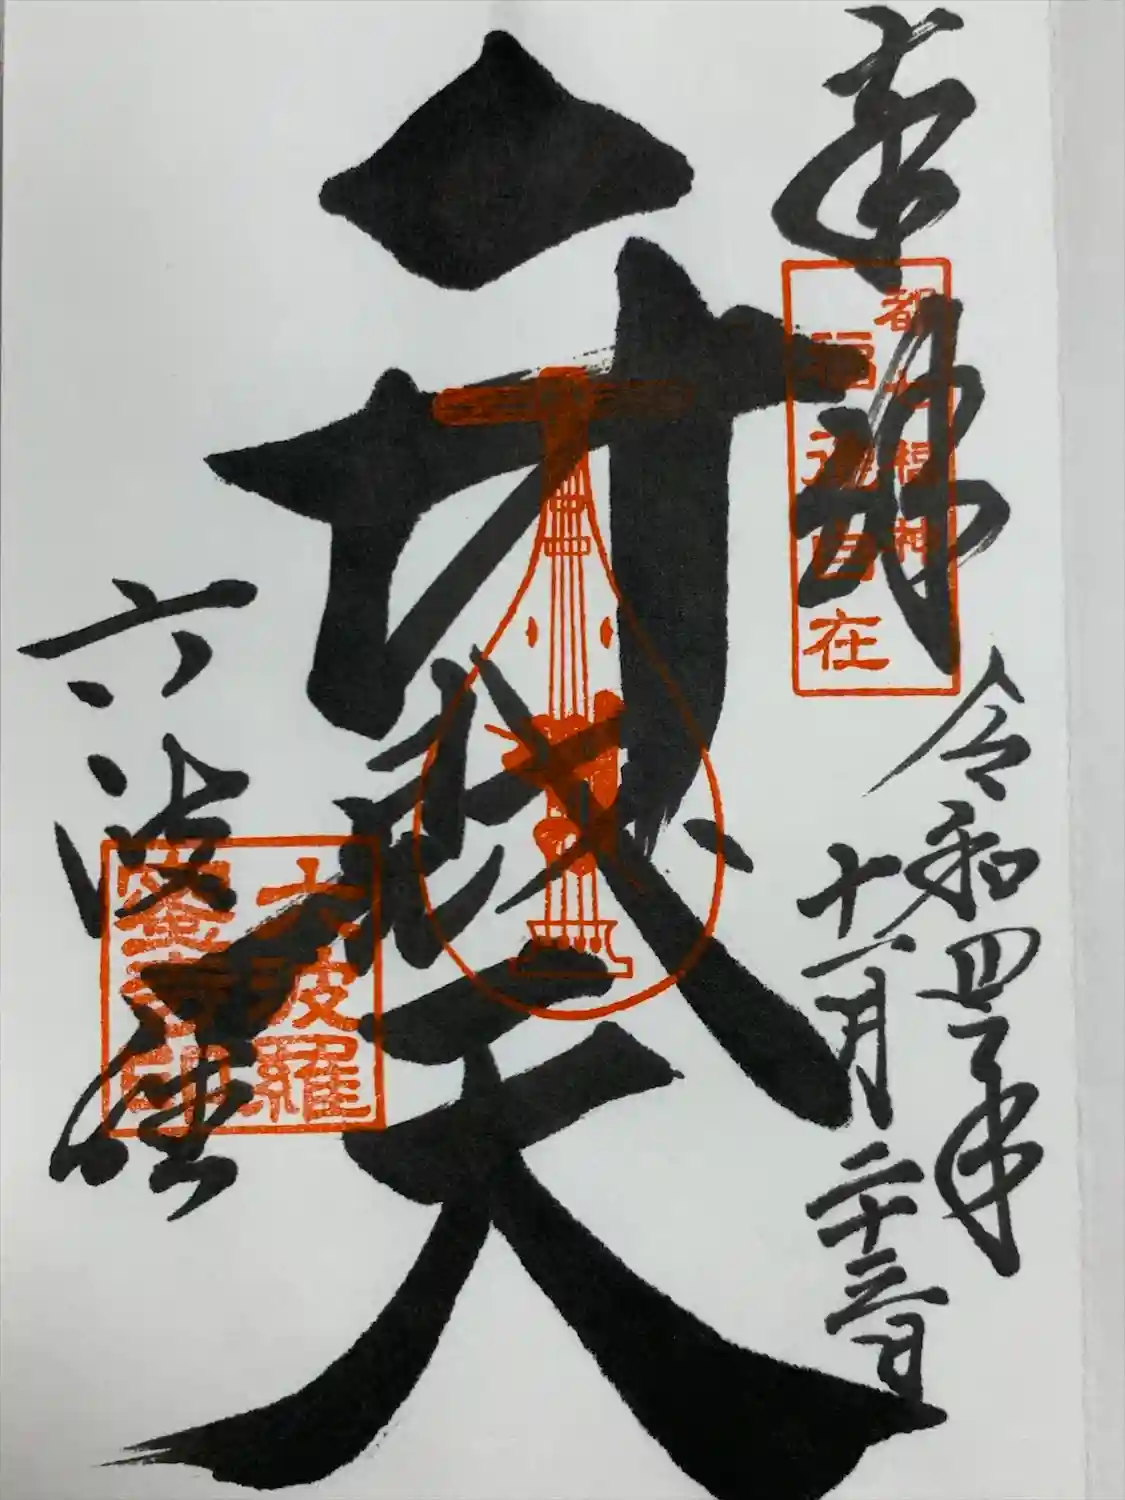 奉拝
都七福神
福徳自在
令和四年
十一月二十三日
弁財天
六波羅密寺印
六波